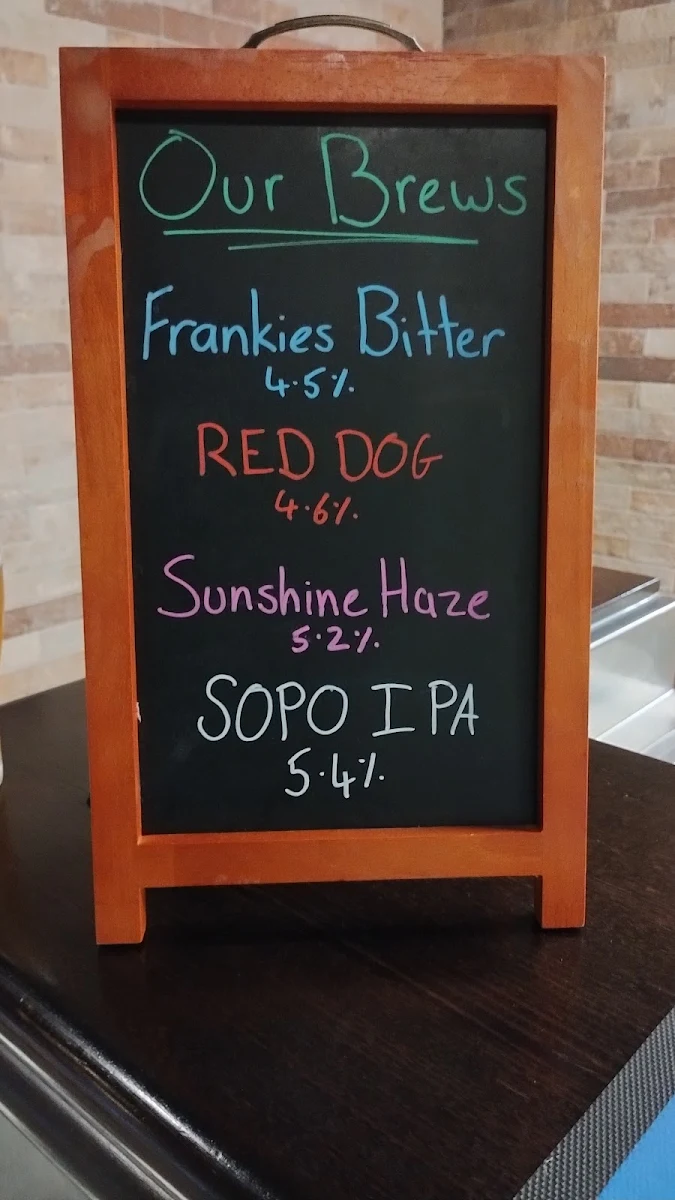 Our Brews
Frankies Bitter
4.5%
RED DOG
4.6%
Sunshine Haze
5.2%
SOPO IPA
5.4%